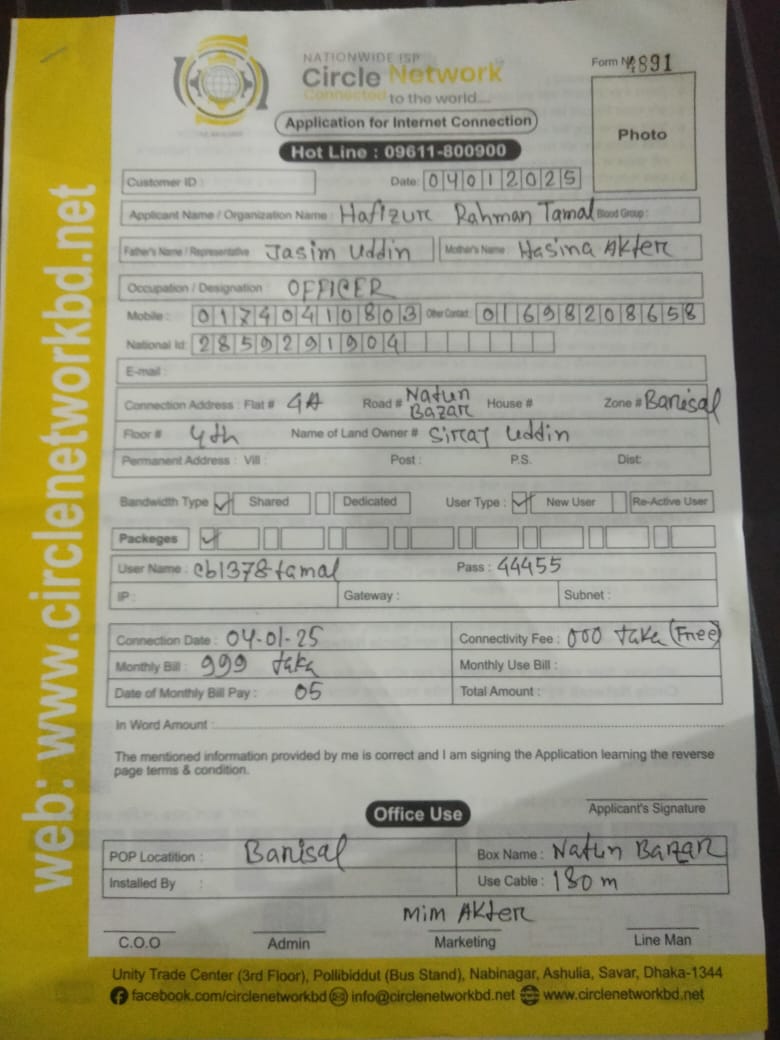 NATIONWIDE ISP
Circle Network
Connected to the world...
Form No 4891
Application for Internet Connection
Photo
Hot Line : 09611-800900
Customer ID :
Date: 04012025
Applicant Name / Organization Name : Hafizur Rahman Tamal Blood Group :
Father's Name / Representative Jasim Uddin Mother's Name : Hasina Akter
Occupation / Designation : OFFICER
Mobile : 01740410803 Other Contact: 01698208658
National Id: 2859291904
E-mail :
Connection Address : Flat # 4A Road # Natun Bazar House # Zone # Barisal
Floor # 4th Name of Land Owner # Siraj Uddin
Permanent Address : Vill : Post : P.S. Dist:
Bandwidth Type Shared Dedicated User Type : New User Re-Active User
Packeges
User Name : cb1378-tamal Pass : 44455
IP : Gateway : Subnet :
Connection Date : 04-01-25 Connectivity Fee : 000 taka (Free)
Monthly Bill : 999 taka Monthly Use Bill :
Date of Monthly Bill Pay : 05 Total Amount :
In Word Amount :
The mentioned information provided by me is correct and I am signing the Application learning the reverse
page terms & condition.
Applicant's Signature
Office Use
POP Locatition : Barisal Box Name : Natun Bazar
Installed By : Use Cable : 180 m
Mim Akter
C.O.O Admin Marketing Line Man
Unity Trade Center (3rd Floor), Pollibiddut (Bus Stand), Nabinagar, Ashulia, Savar, Dhaka-1344
facebook.com/circlenetworkbd info@circlenetworkbd.net www.circlenetworkbd.net
web: www.circlenetworkbd.net